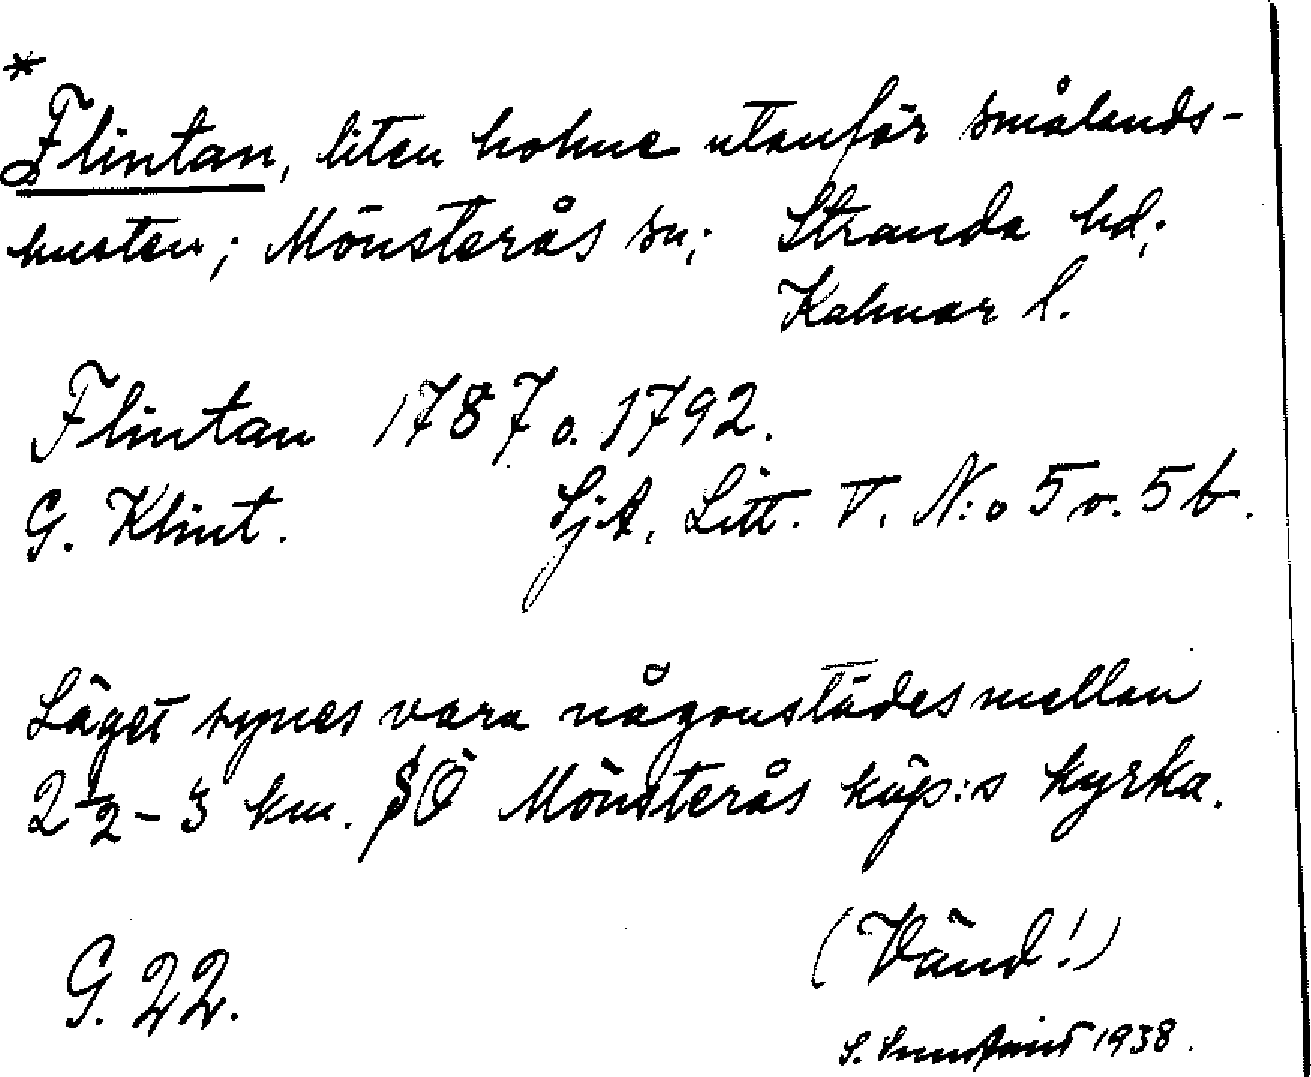 *
Flintan, liten holme utanför smålands-
kusten; Mönsterås sn; Stranda hd;
Kalmar l.
Flintan 1787 o. 1792.
G. Klint. SjA. Litt. V. N:o 5 o. 5 b.
Läget synes vara någonstädes mellan
2 1/2 - 3 km. SÖ Mönsterås köp:s kyrka.
(Vänd!)
G. 22.
S. 1938.